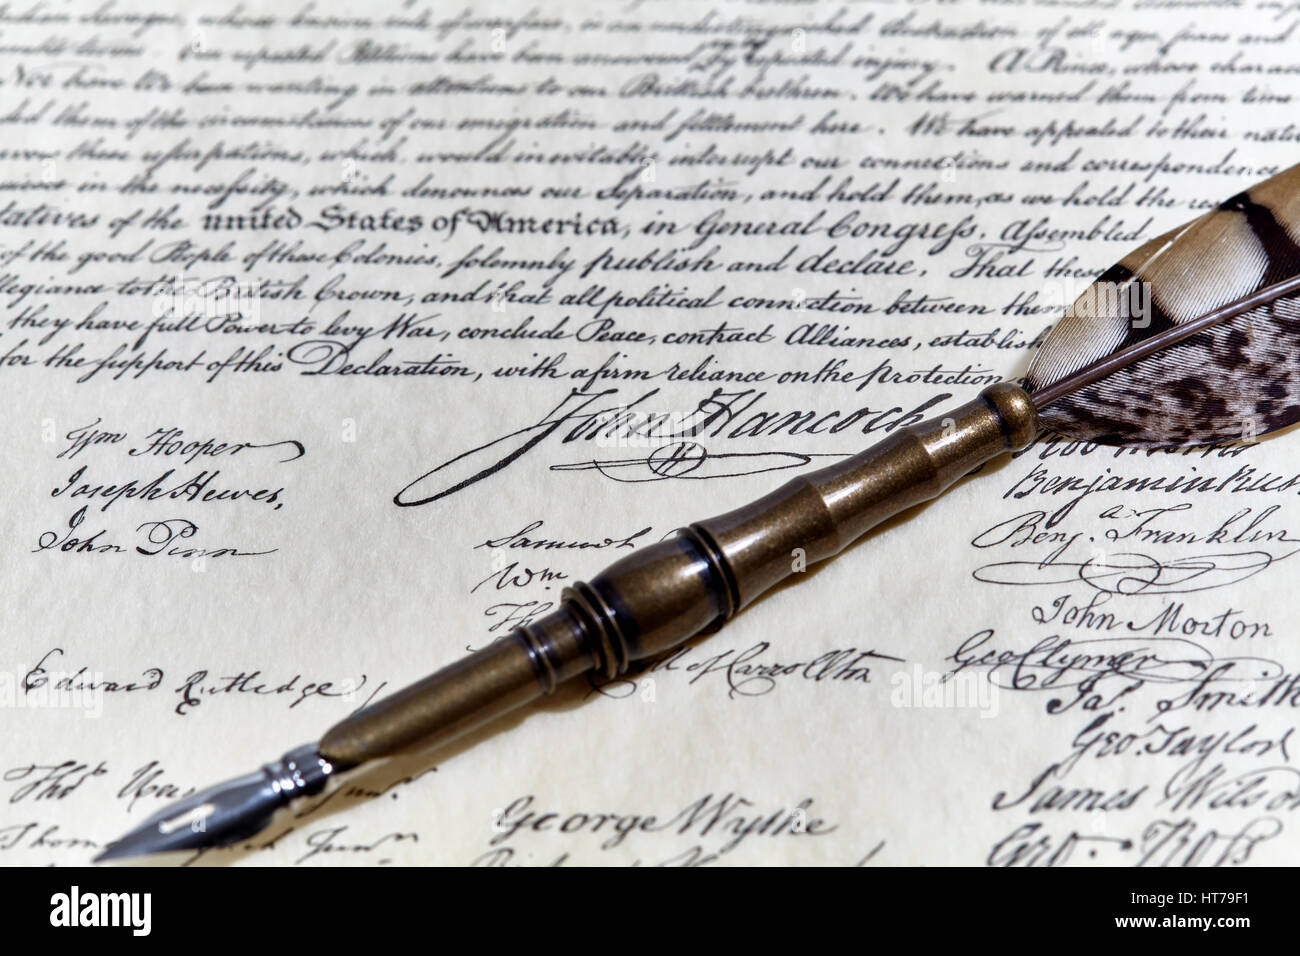 whose known rule of warfare, is an undistinguished destruction of all ages, sexes and
Our repeated Petitions have been answered by repeated injury. A Prince, whose charac
Nor have We been wanting in attentions to our Brittish brethren. We have warned them from time
ded them of the circumstances of our emigration and settlement here. We have appealed to their nativ
vow these usurpations, which, would inevitably interrupt our connections and correspondence
uiesce in the necessity, which denounces our Separation, and hold them, as we hold the res
tatives of the united States of America, in General Congress, Assembled
of the good People of these Colonies, solemnly publish and declare, That these
llegiance to the British Crown, and that all political connection between them
they have full Power to levy War, conclude Peace, contract Alliances, establish
for the support of this Declaration, with a firm reliance on the Protection
John Hancock
Wm Hooper
Joseph Hewes,
John Penn
Samuel
Wm
Th
ll of Carrollton
Rob Morris
Benjamin Rus
Benj. Franklin
John Morton
Geo Clymer
Jas. Smith
Geo. Taylor
James Wilson
Geo. Ross
Edward Rutledge
Thos Hey Junr.
Thom ch Junr.
George Wythe
a alamy
alamy
Image ID: HT79F1
www.alamy.com